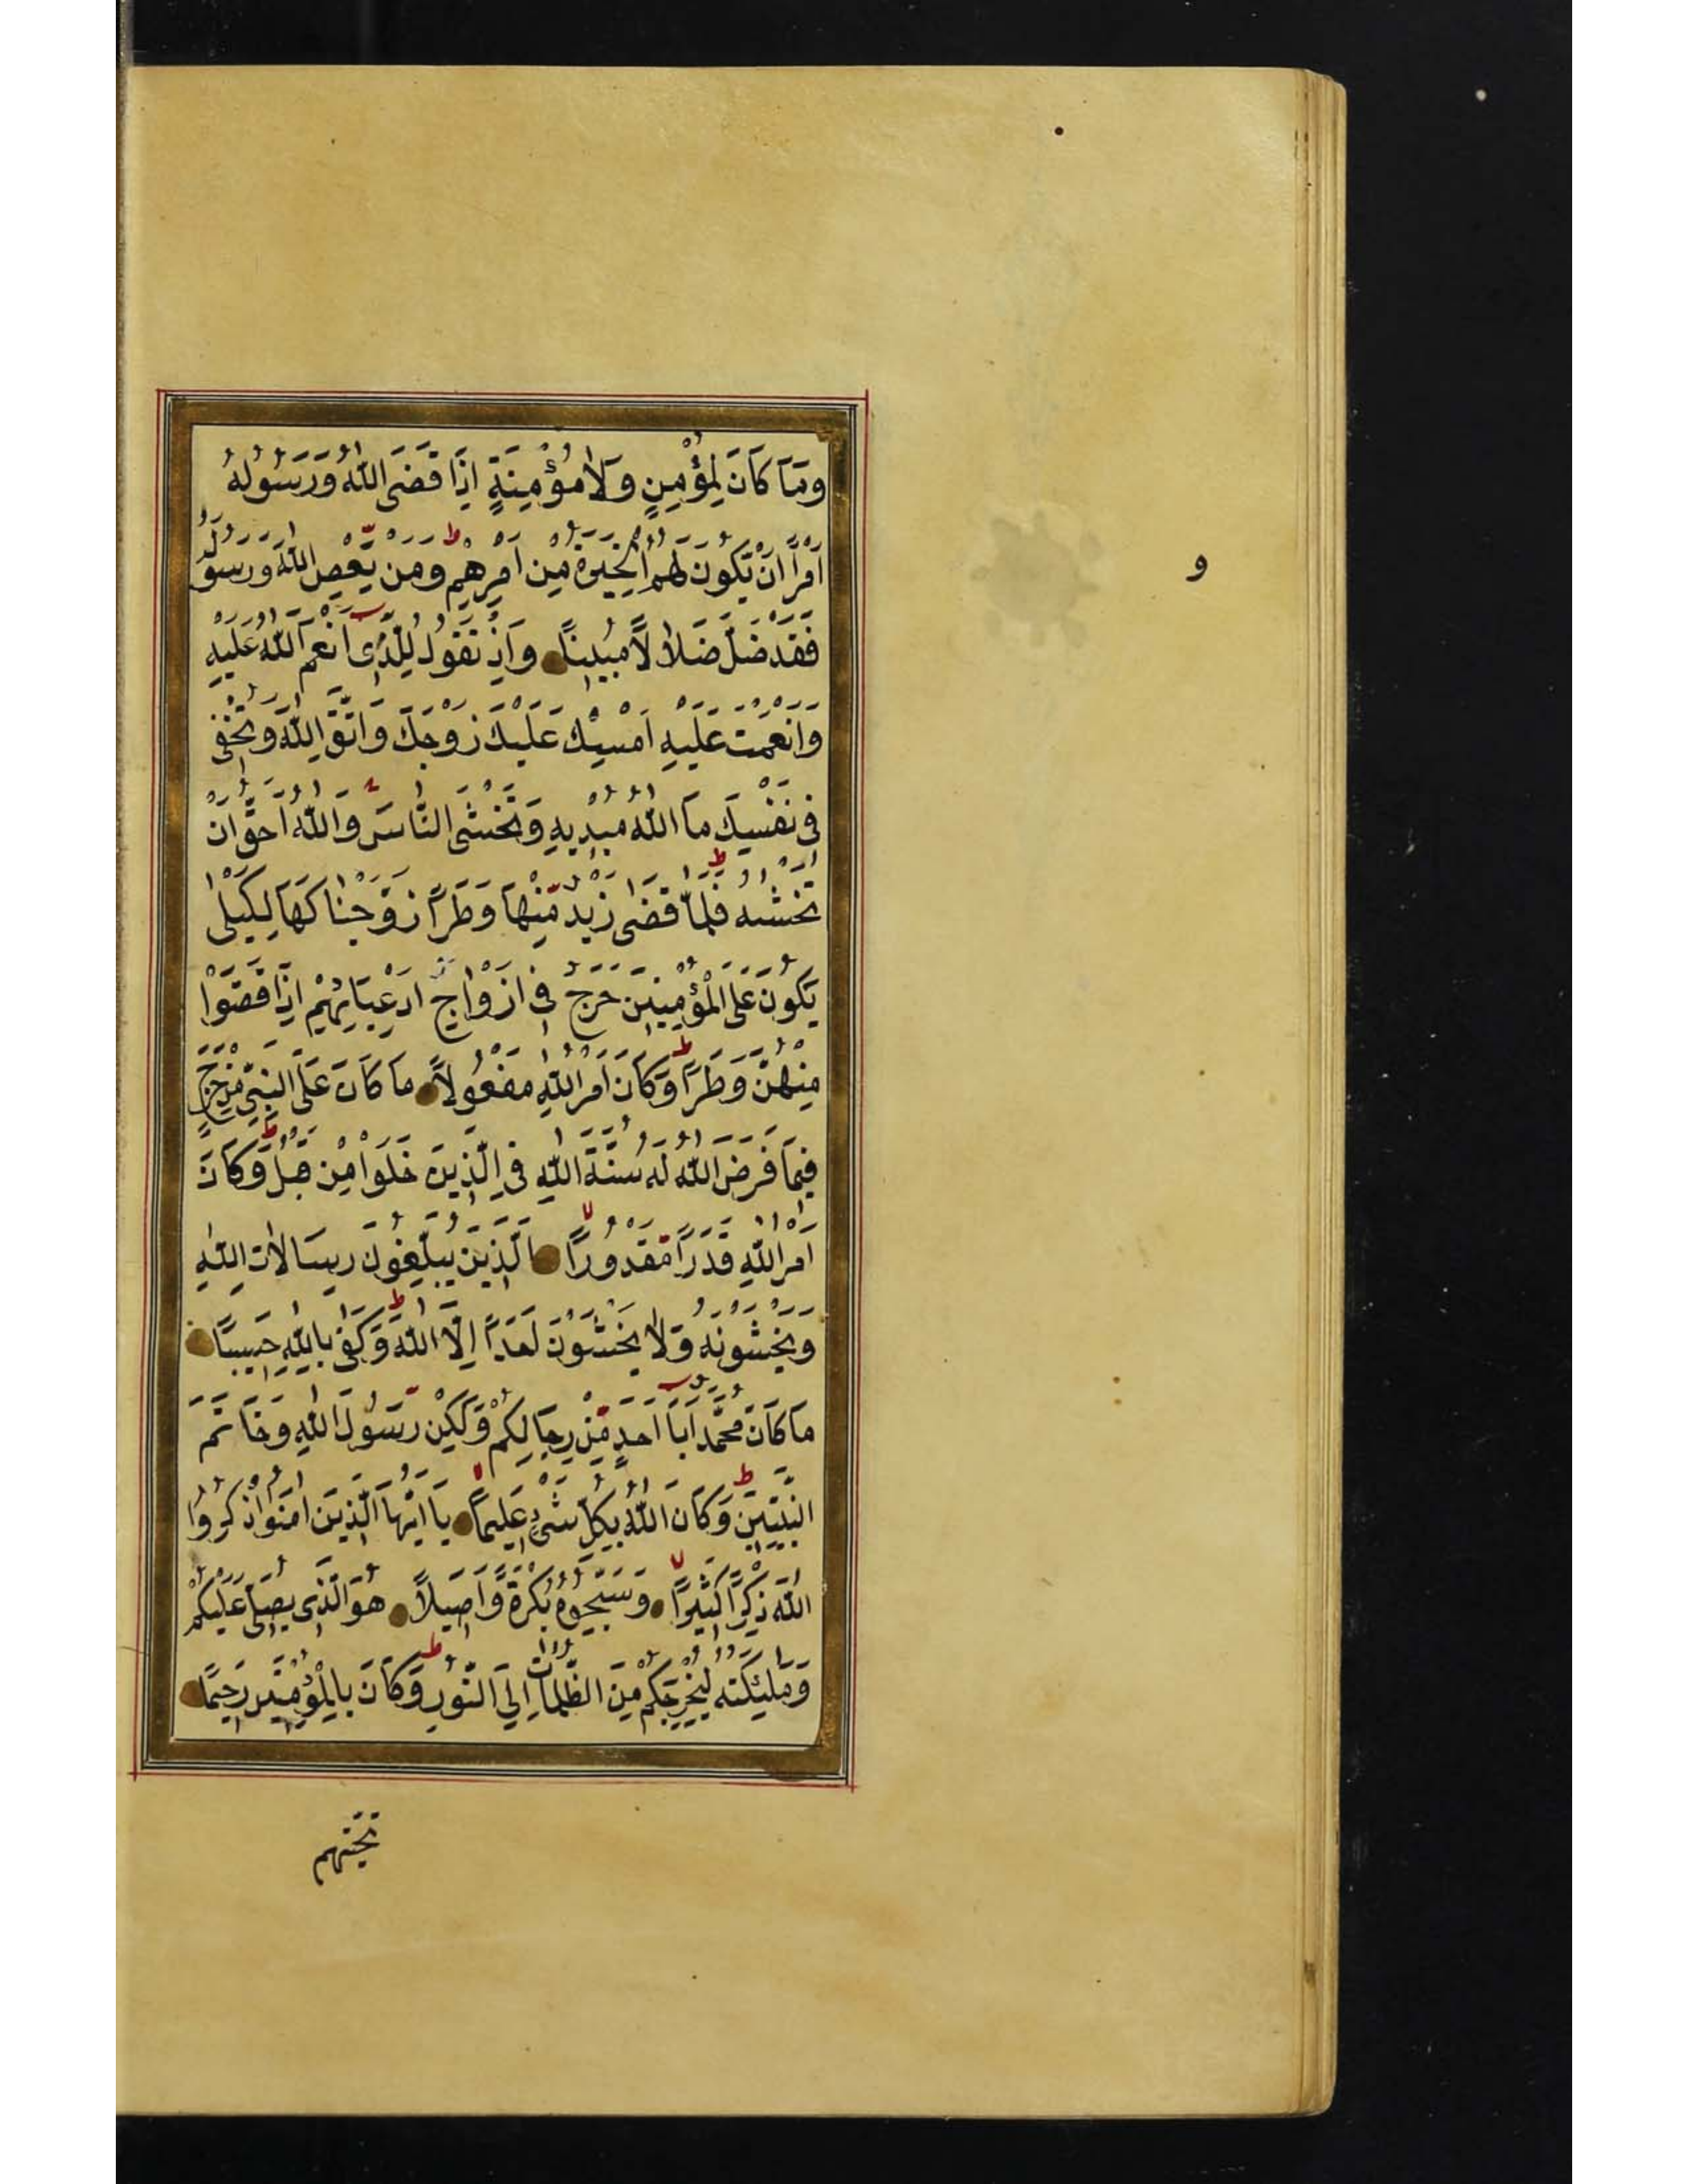 وَمَا كَانَ لِمُؤْمِنٍ وَلَا مُؤْمِنَةٍ اِذَا قَضَى اللّٰهُ وَرَسُولُهُ
اَمْرًا اَنْ تَكُونَ لَهُمُ الْخِيَرَةُ مِنْ اَمْرِهِمْ ط وَمَنْ يَعْصِ اللّٰهَ وَرَسُولَهُ
فَقَدْ ضَلَّ ضَلَالًا مُبِينًا وَاِذْ تَقُولُ لِلَّذِى اَنْعَمَ اللّٰهُ عَلَيْهِ
وَاَنْعَمْتَ عَلَيْهِ اَمْسِكْ عَلَيْكَ زَوْجَكَ وَاتَّقِ اللّٰهَ وَتُخْفِى
فِى نَفْسِكَ مَا اللّٰهُ مُبْدِيهِ وَتَخْشَى النَّاسَ وَاللّٰهُ اَحَقُّ اَنْ
تَخْشٰيهُ ط فَلَمَّا قَضٰى زَيْدٌ مِنْهَا وَطَرًا زَوَّجْنَاكَهَا لِكَيْلَا
يَكُونَ عَلَى الْمُؤْمِنِينَ حَرَجٌ فِى اَزْوَاجِ اَدْعِيَائِهِمْ اِذَا قَضَوْا
مِنْهُنَّ وَطَرًا ط وَكَانَ اَمْرُ اللّٰهِ مَفْعُولًا مَا كَانَ عَلَى النَّبِىِّ مِنْ حَرَجٍ
فِيمَا فَرَضَ اللّٰهُ لَهُ سُنَّةَ اللّٰهِ فِى الَّذِينَ خَلَوْا مِنْ قَبْلُ ط وَكَانَ
اَمْرُ اللّٰهِ قَدَرًا مَقْدُورًا لا الَّذِينَ يُبَلِّغُونَ رِسَالَاتِ اللّٰهِ
وَيَخْشَوْنَهُ وَلَا يَخْشَوْنَ اَحَدًا اِلَّا اللّٰهَ ط وَكَفٰى بِاللّٰهِ حَسِيبًا
مَا كَانَ مُحَمَّدٌ اَبَا اَحَدٍ مِنْ رِجَالِكُمْ وَلٰكِنْ رَسُولَ اللّٰهِ وَخَاتَمَ
النَّبِيِّينَ ط وَكَانَ اللّٰهُ بِكُلِّ شَىْءٍ عَلِيمًا يَا اَيُّهَا الَّذِينَ اٰمَنُوا اذْكُرُوا
اللّٰهَ ذِكْرًا كَثِيرًا لا وَسَبِّحُوهُ بُكْرَةً وَاَصِيلًا هُوَ الَّذِى يُصَلِّى عَلَيْكُمْ
وَمَلٰئِكَتُهُ لِيُخْرِجَكُمْ مِنَ الظُّلُمَاتِ اِلَى النُّورِ ط وَكَانَ بِالْمُؤْمِنِينَ رَحِيمًا
تحيتهم
و